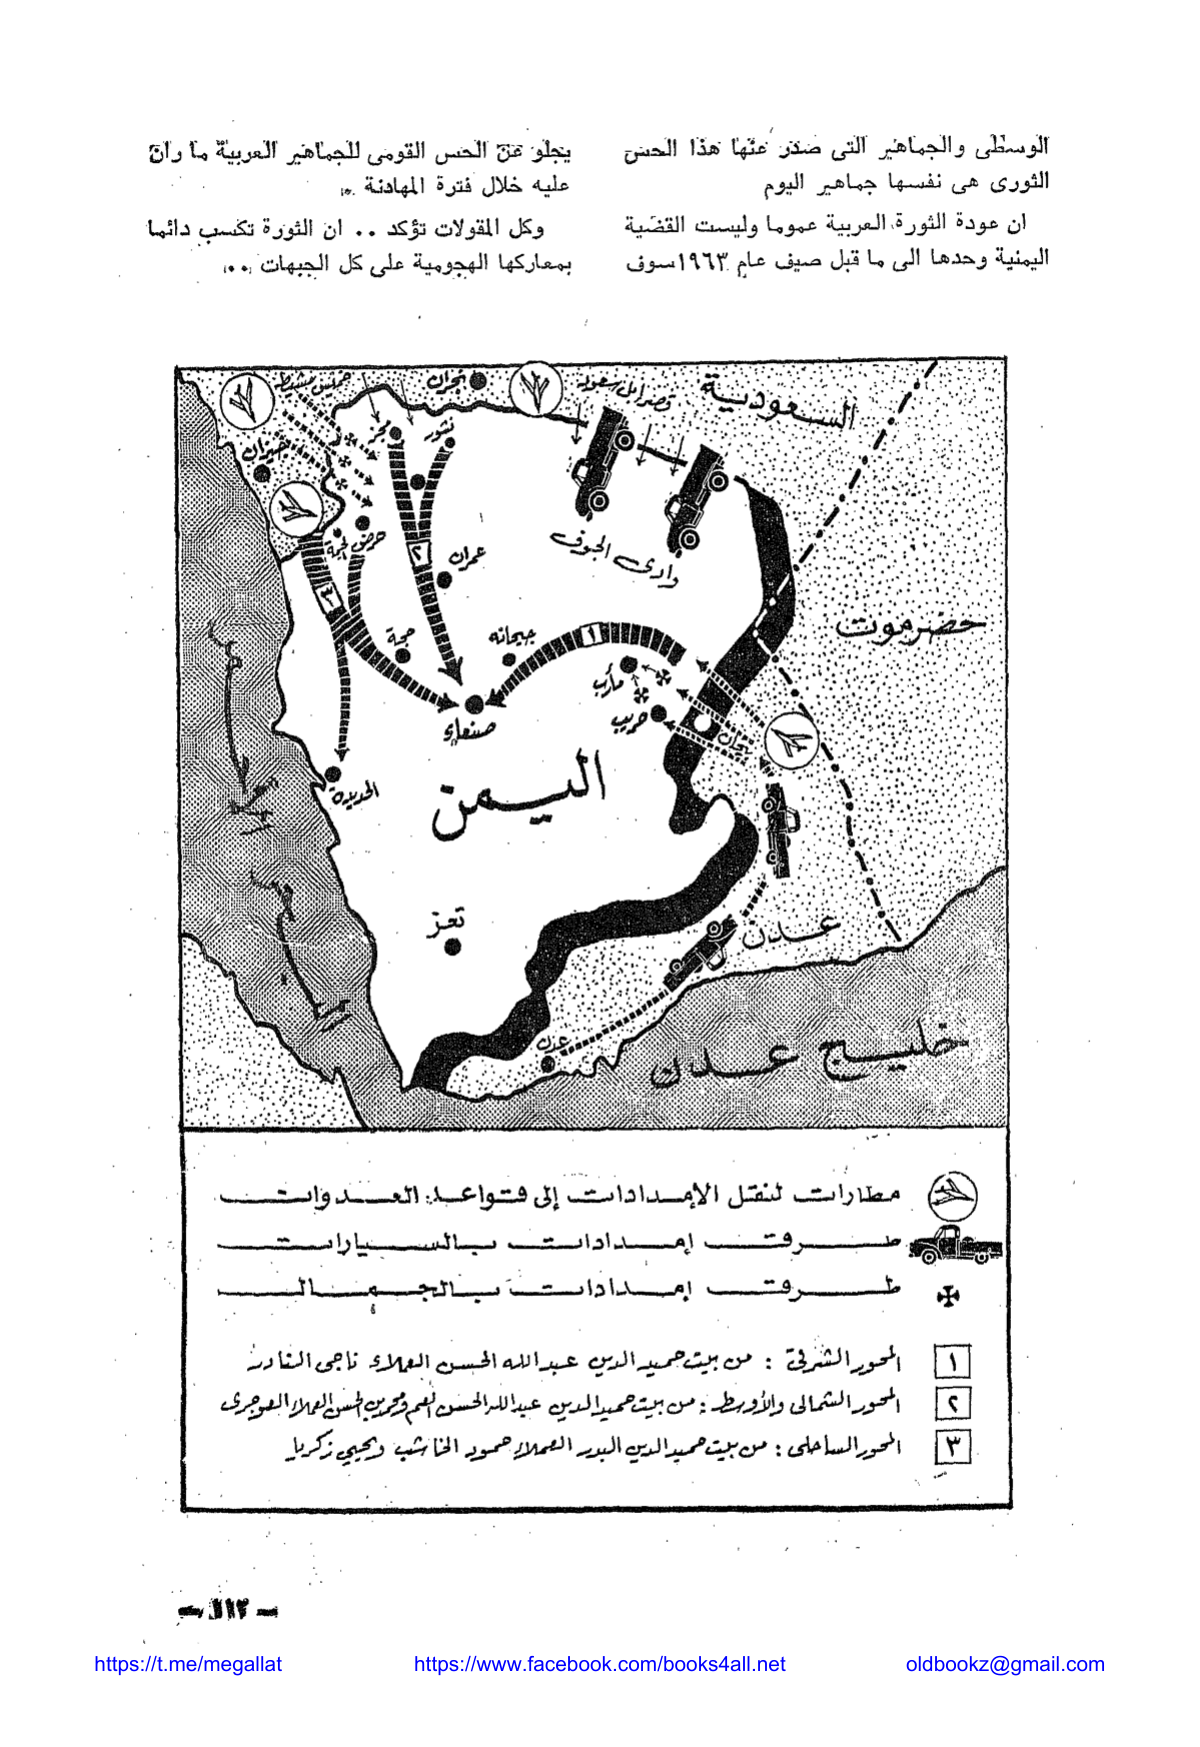 الوسطى والجماهير التى صدر عنها هذا الحس
الثورى هى نفسها جماهير اليوم
ان عودة الثورة العربية عموما وليست القضية
اليمنية وحدها الى ما قبل صيف عام ١٩٦٣ سوف
يجلو عن الحس القومى للجماهير العربية ما ران
عليه خلال فترة المهادنة .
وكل المقولات تؤكد .. ان الثورة تكسب دائما
بمعاركها الهجومية على كل الجبهات ..
السعودية
قصر ابن سعود
نجران
خميس مشيط
جيزان
نشور
حرض
وادى الجوف
عمران
حضرموت
جيحانه
حجة
مأرب
حريب
بيحان
صنعاء
اليمن
الحديدة
تعز
عدن
عدن
خليج عدن
البحر الأحمر
١
٢
٣
مطارات لنقل الإمدادات إلى قواعد العدوان
طرق إمدادات بالسيارات
طرق إمدادات بالجمال
١ المحور الشرقى : من بيت حميد الدين عبد الله الحسن العملاء ناجى الغادر
٢ المحور الشمالى والأوسط : من بيت حميد الدين عبد الله الحسن ومحمد بن الحسن العملاء
٣ المحور الساحلى : من بيت حميد الدين البدر العملاء حمود الخاشب ويحيي زكريا
https://t.me/megallat
https://www.facebook.com/books4all.net
oldbookz@gmail.com